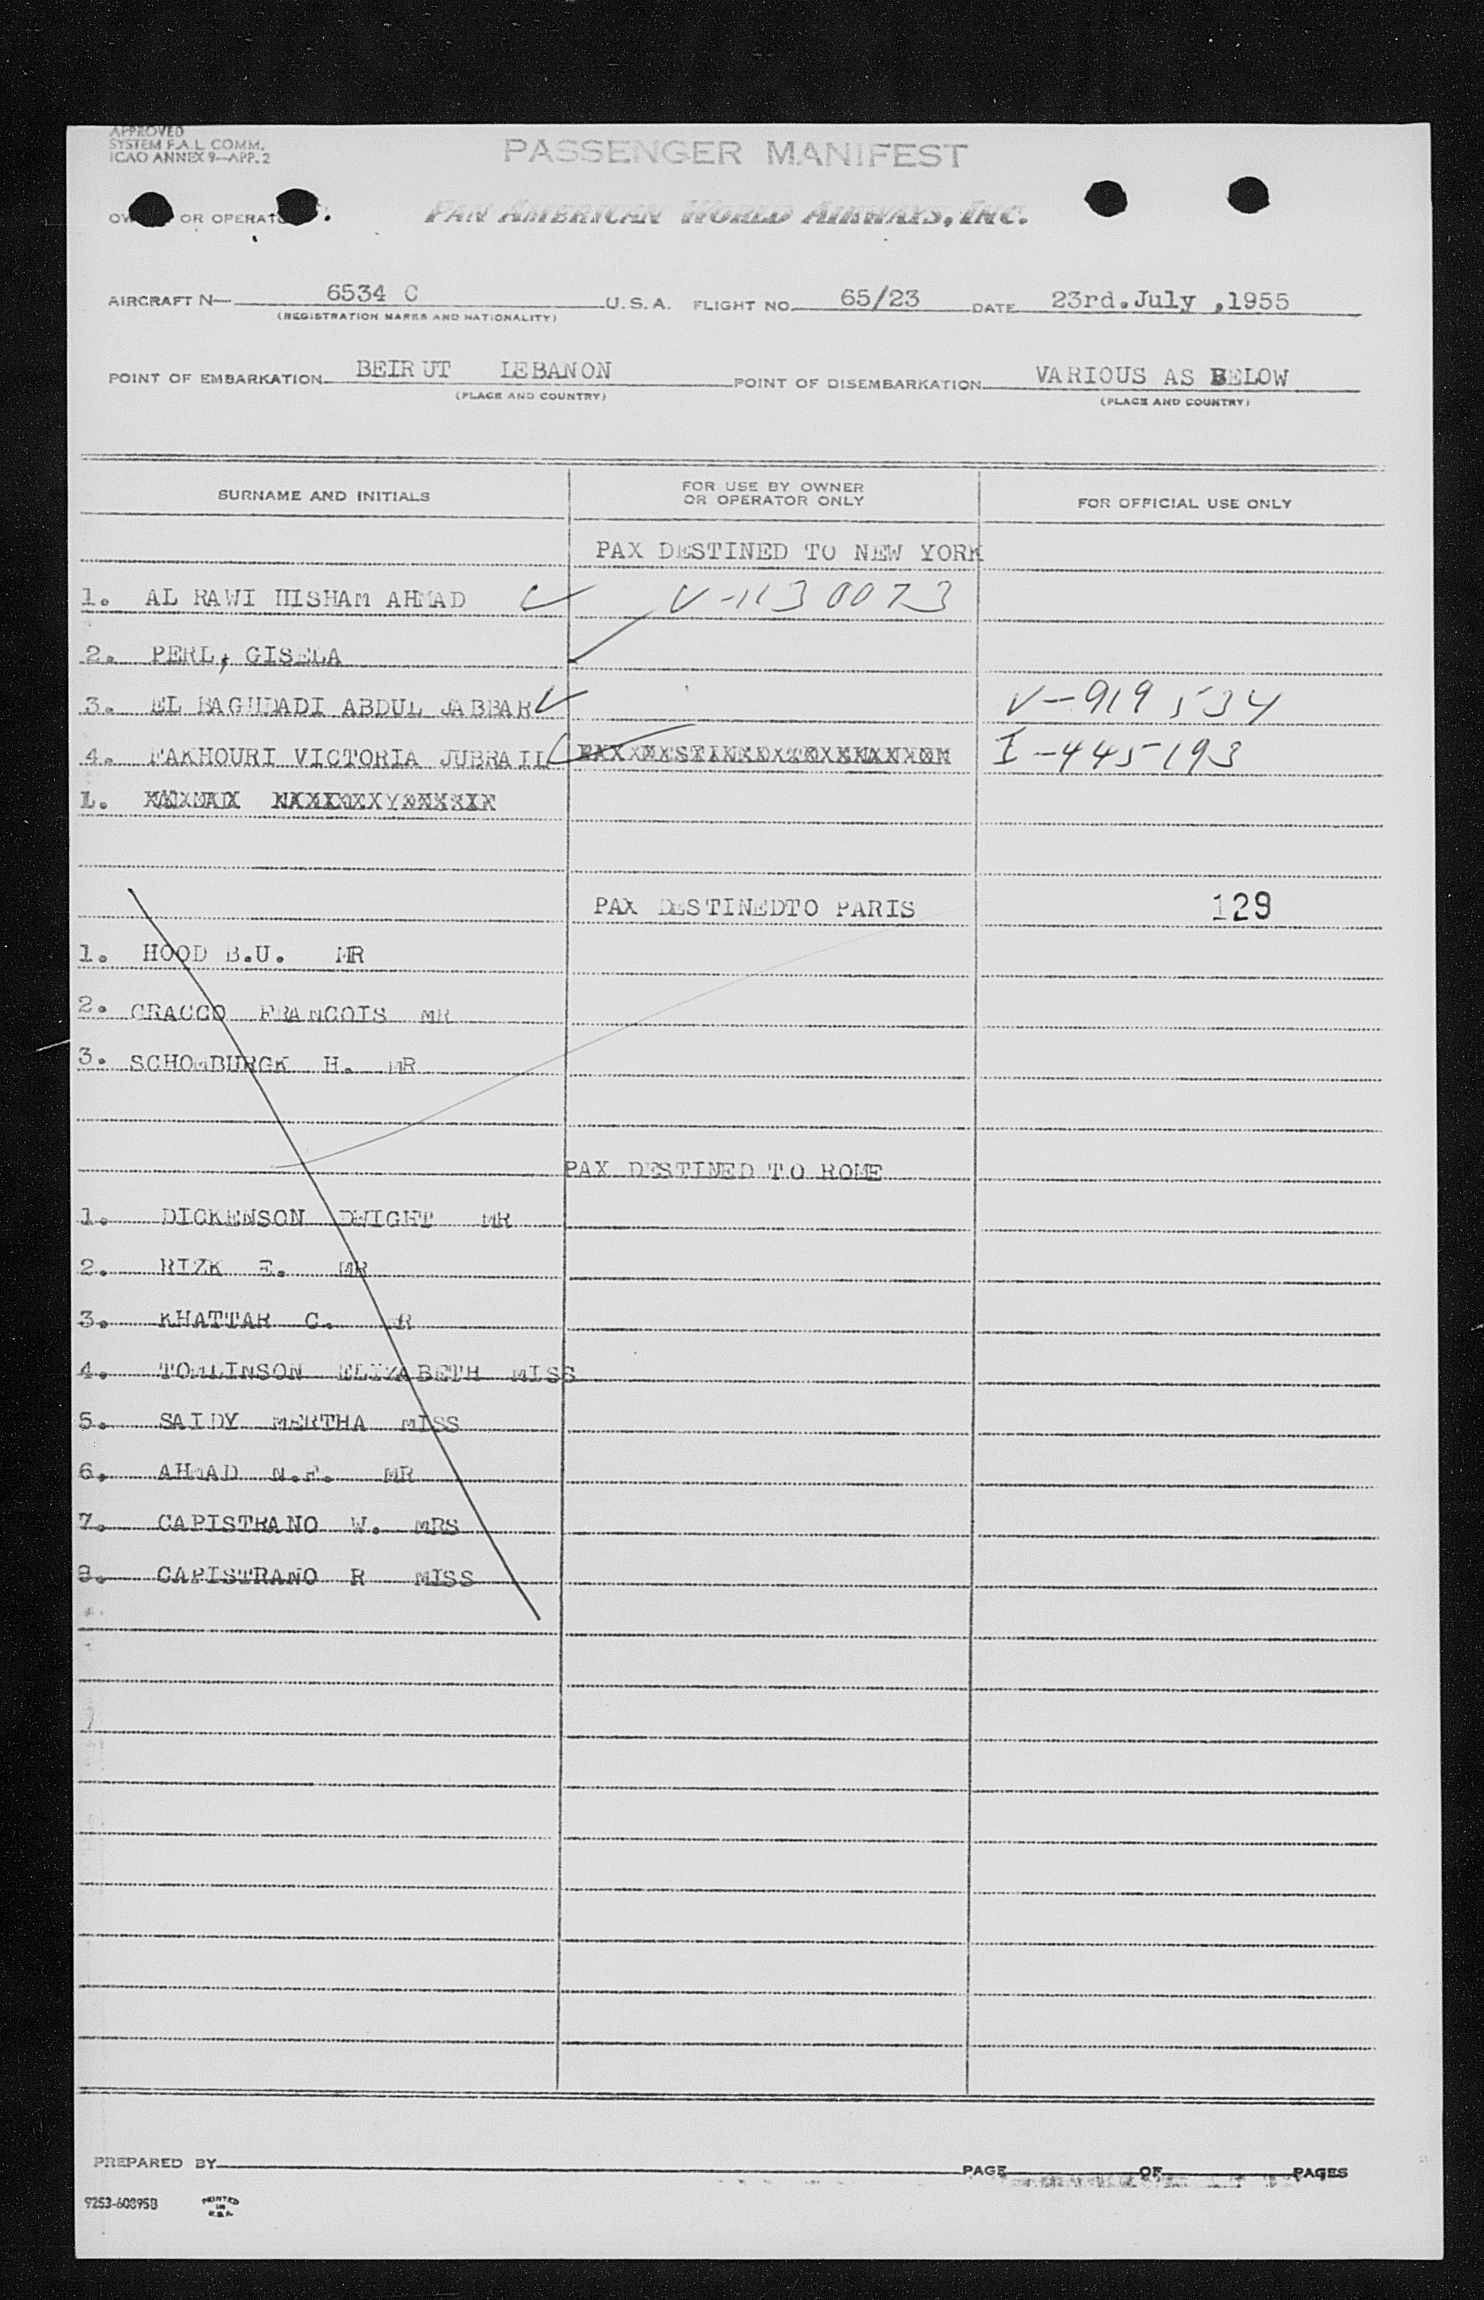 APPROVED
SYSTEM F.A.L. COMM.
ICAO ANNEX 9—APP. 2
PASSENGER MANIFEST
OR OPERAT
PAN AMERICAN WORLD AIRWAYS, INC.
AIRCRAFT N— 6534 C U.S.A. FLIGHT NO. 65/23 DATE 23rd.July ,1955
(REGISTRATION MARKS AND NATIONALITY)
POINT OF EMBARKATION BEIRUT LEBANON POINT OF DISEMBARKATION VARIOUS AS BELOW
(PLACE AND COUNTRY) (PLACE AND COUNTRY)
SURNAME AND INITIALS FOR USE BY OWNER OR OPERATOR ONLY FOR OFFICIAL USE ONLY
PAX DESTINED TO NEW YORK
1. AL RAWI HISHAM AHMAD V-1130073
2. PERL, GISELA
3. EL BAGHDADI ABDUL JABBAR V-919534
4. FAKHOURI VICTORIA JUBRAIL I-445193
1.
PAX DESTINEDTO PARIS 129
1. HOOD B.U. MR
2. CRACCO FRANCOIS MR
3. SCHOMBURGK H. MR
PAX DESTINED TO ROME
1. DICKENSON DWIGHT MR
2. RIZK E. MR
3. KHATTAR C. MR
4. TOMLINSON ELIZABETH MISS
5. SAIDY MERTHA MISS
6. AHMAD N.F. MR
7. CAPISTRANO W. MRS
8. CAPISTRANO R MISS
PREPARED BY PAGE OF PAGES
9253-60895B PRINTED IN U.S.A.